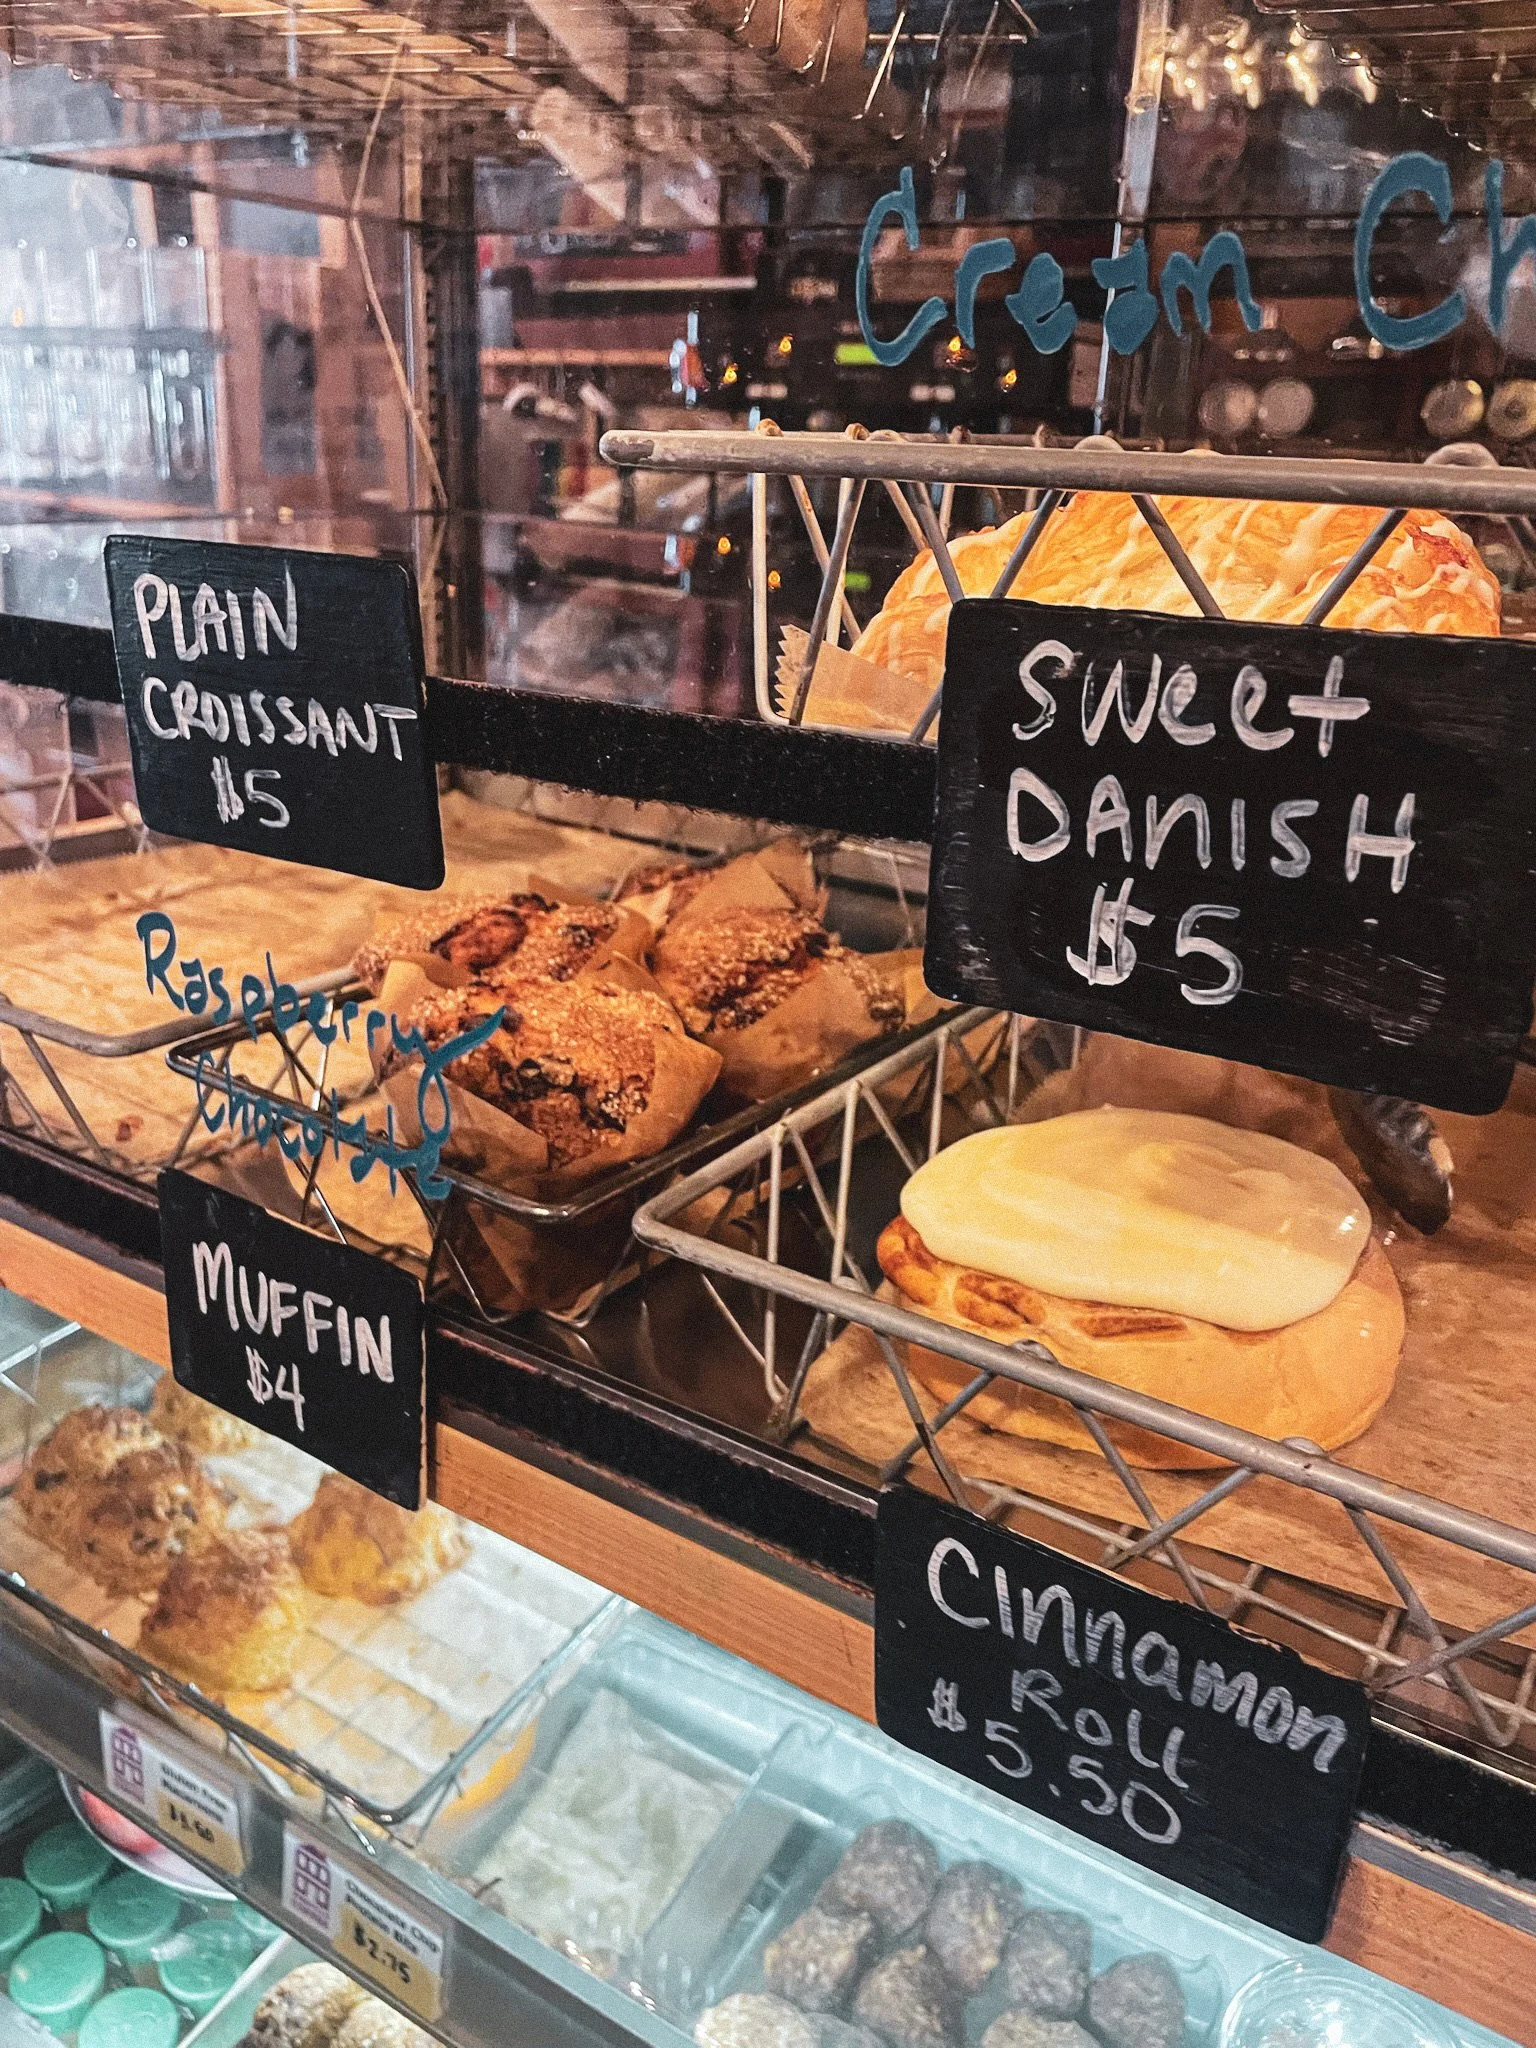 Cream Ch
PLAIN
CROISSANT
$5
Sweet
DANISH
$5
Raspberry
Chocolate
MUFFIN
$4
CINNAMON
ROLL
$5.50
Gluten Free
Chocolate Chip
$2.75